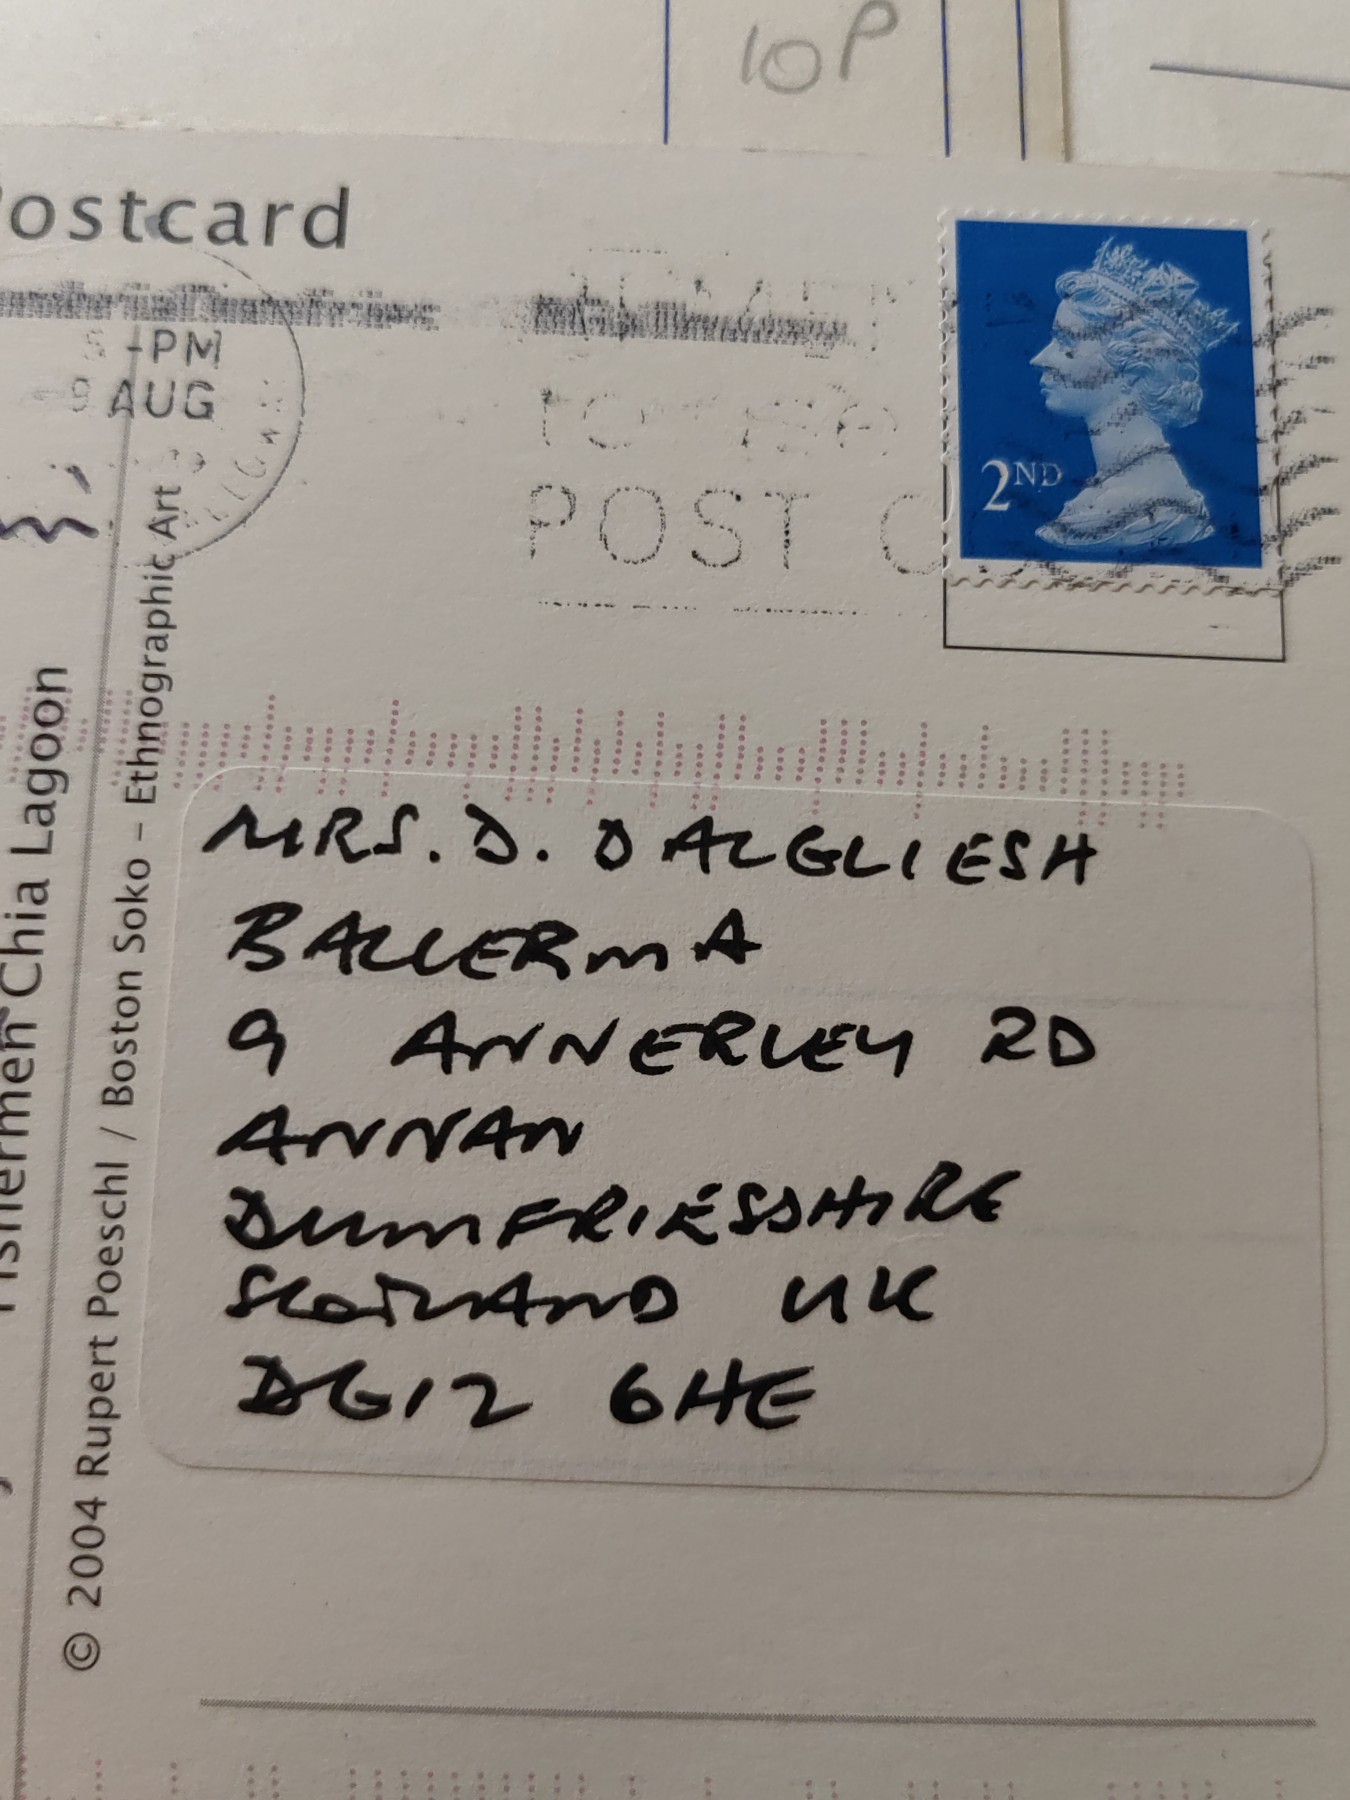 10P
Postcard
PM
AUG
POST C
2ND
MRS. D. DALGLIESH
BALLERMA
9 ANNERLEY RD
ANNAN
DUMFRIESSHIRE
SCOTLAND UK
DG12 6HE
Fishermen Chia Lagoon
© 2004 Rupert Poeschl / Boston Soko – Ethnographic Art